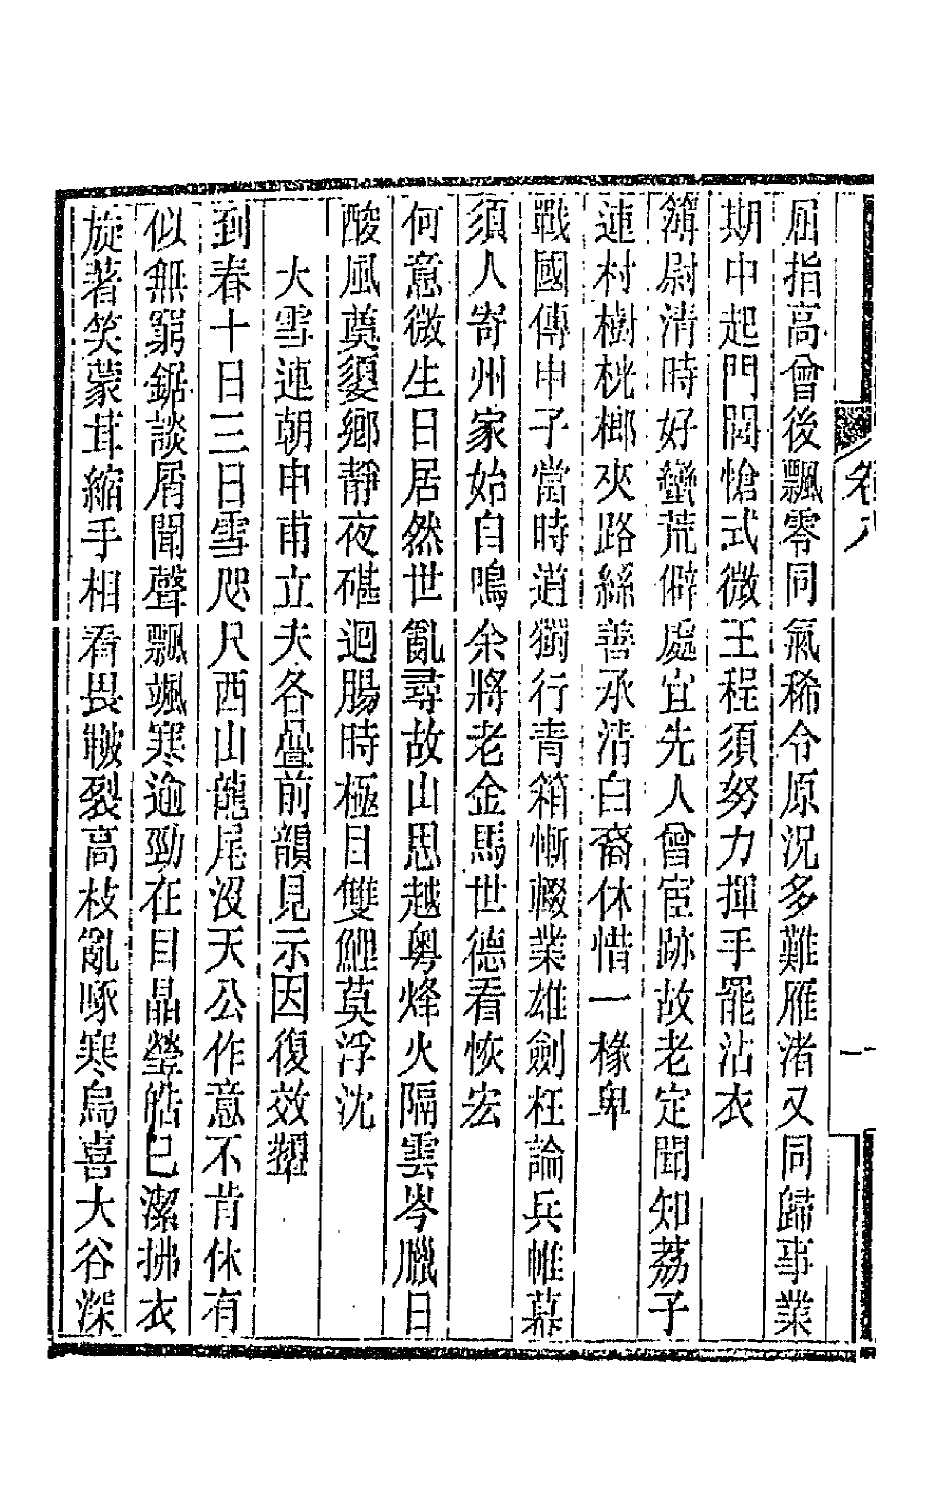 卷八
一
屈指高曾後飄零同氣稀令原況多難雁渚又同歸事業
期中起門閭愴式微王程須努力揮手罷沾衣
簿尉清時好蠻荒僻處宜先人曾宦跡故老定聞知荔子
連村樹桄榔夾路絲善承清白裔休惜一椽卑
戰國傳申子當時道獨行青箱慚輟業雄劍枉論兵帷幕
須人寄州家始自鳴余將老金馬世德看恢宏
何意微生日居然世亂尋故山思越粵烽火隔雲岑臘日
酸風奠窮鄉靜夜碪迴腸時極目雙鯉莫浮沈
大雪連朝申甫立夫各疊前韻見示因復效顰
到春十日三日雪咫尺西山龍尾沒天公作意不肯休有
似無窮鋸談屑聞聲飄颯寒逾勁在目晶瑩皓已潔拂衣
旋著笑蒙茸縮手相看畏皸裂高枝亂啄寒烏喜大谷深